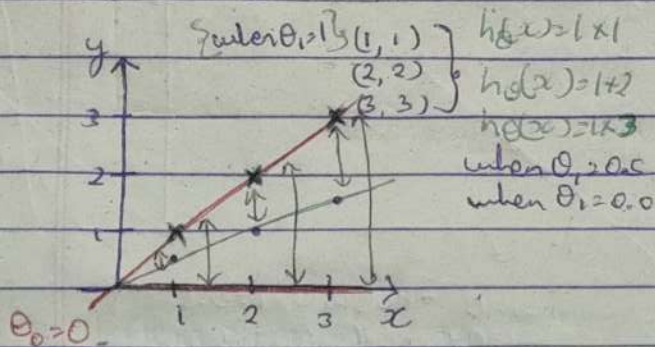 y
{when θ₁=1} (1, 1)
(2, 2)
(3, 3)
hθ(x)=1×1
hθ(x)=1+2
hθ(x)=1×3
when θ₁=0.5
when θ₁=0.0
3
2
1
1 2 3 x
θ₀=0